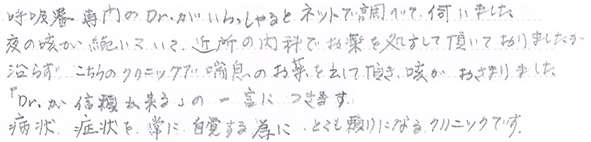 呼吸器専門のDr.がいらっしゃるとネットで調べて、伺いました
夜の咳が続いていて、近所の内科でお薬を処方して頂いておりましたが
治らず こちらのクリニックで喘息のお薬を出して頂き、咳がおさまりました
「Dr.が信頼出来る」の一言につきます。
病状、症状を、常に自覚する為に、とても頼りになるクリニックです。